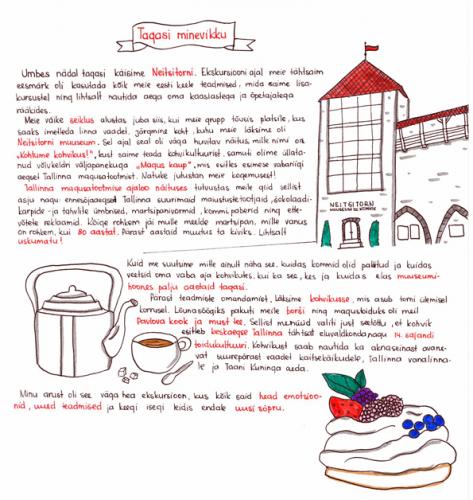 Tagasi minevikku
Umbes nädal tagasi käisime Neitsitorni. Ekskursiooni ajal meie tähtsaim
eesmärk oli kasutada kõik meie eesti keele teadmised, mida saime lisa-
kursustel ning lihtsalt nautida aega oma kaaslastega ja õpetajatega
rääkides.
Meie väike seiklus alustas juba siis, kui meie grupp tõusis platsile, kus
saaks imelleda linna vaadet, järgmine koht, kuhu meie läksime oli
Neitsitorni muuseum. Sel ajal seal oli väga huvitav näitus mille nimi on
„Kohtume kohvikus!", kust saime teada kohvikultuurist, samuti olime üllata-
nud võrukeldri väljapanekuga „Magus kaup", mis esitles esimese vabariigi
aegset Tallinna magusatootmist. Natuke juhustan meie kogemusest!
Tallinna magusatootmise ajaloo näituses tutvustas meile giid sellist
asju nagu ennesõjaaegset Tallinna suurimaid maiustustetootjaid, šokolaadi-
karpide -ja tahvlite ümbrised, martsipanivormid, kommipaberid ning ette-
võtete reklaamid. Kõige rohkem jäi mulle meelde martsipan, mille vanus
on rohkem, kui 80 aastat. Pärast aastaid muutus ta kiviks. Lihtsalt
uskumatu!
NEITSITORN
Kuid me suutsime mitte ainult näha see, kuidas kommid olid pakitud ja kuidas
veetsid oma vaba aja kohvikutes, kui ka see, kes ja kuidas elas muuseumi-
hoones palju aastaid tagasi.
Pärast teadmiste omandamist, läksime kohvikusse, mis asub torni ülemisel
korrusel. Lõunasöögiks pakuti meile borši ning magustoiduks oli meil
Pavlova kook ja must tee. Sellist menüüd valiti just seetõttu, et kohvik
esitleb keskaegse Tallinna tähtsat eluvaldkonda nagu 14. sajandi
toidukultuuri. Kohvikust saab nautida ka aknaseinast avane-
vat suurepärast vaadet kaitsekäikudele, Tallinna vanalinna-
le ja Taani Kuninga aeda.
Minu arust oli see väga hea ekskursioon, kus kõik said head emotsioo-
nid, uued teadmised ja keegi isegi leidis endale uusi sõpru.